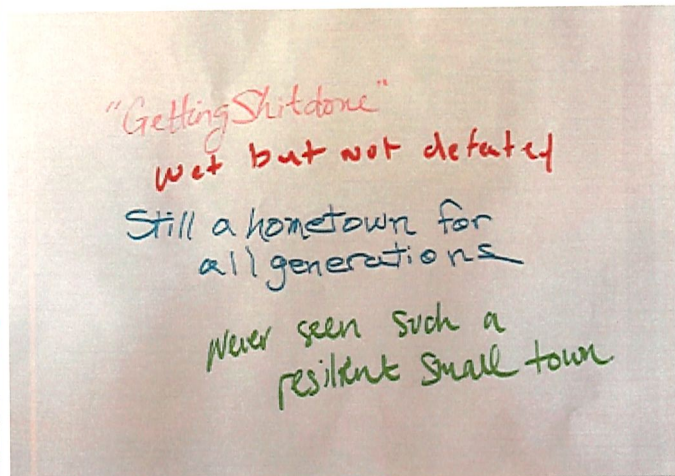 "Getting Shit done"
wet but not defeated
Still a hometown for
all generations
Never seen such a
resilient small town